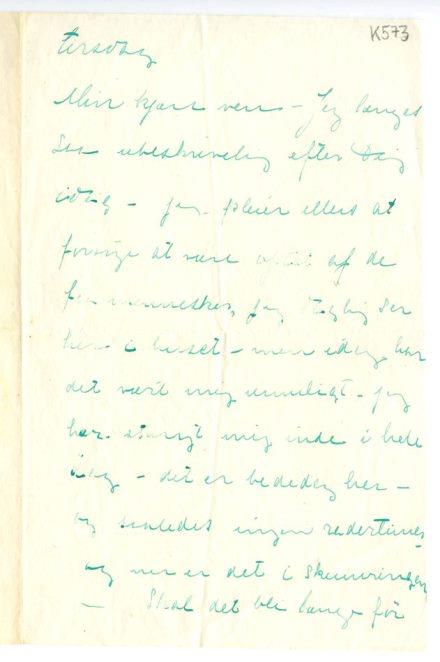 K573
tirsdag
Min kjære ven - Jeg længes
saa ubeskrivelig efter Dig
idag - jeg pleier ellers at
forsøge at være optat af de
faa mennesker, jeg daglig ser
her i huset - men idag har
det vært mig umuligt - jeg
har stængt mig inde i hele
dag - det er bededag her -
og saaledes ingen
og nu er det i skumringen
- Skal det bli længe før